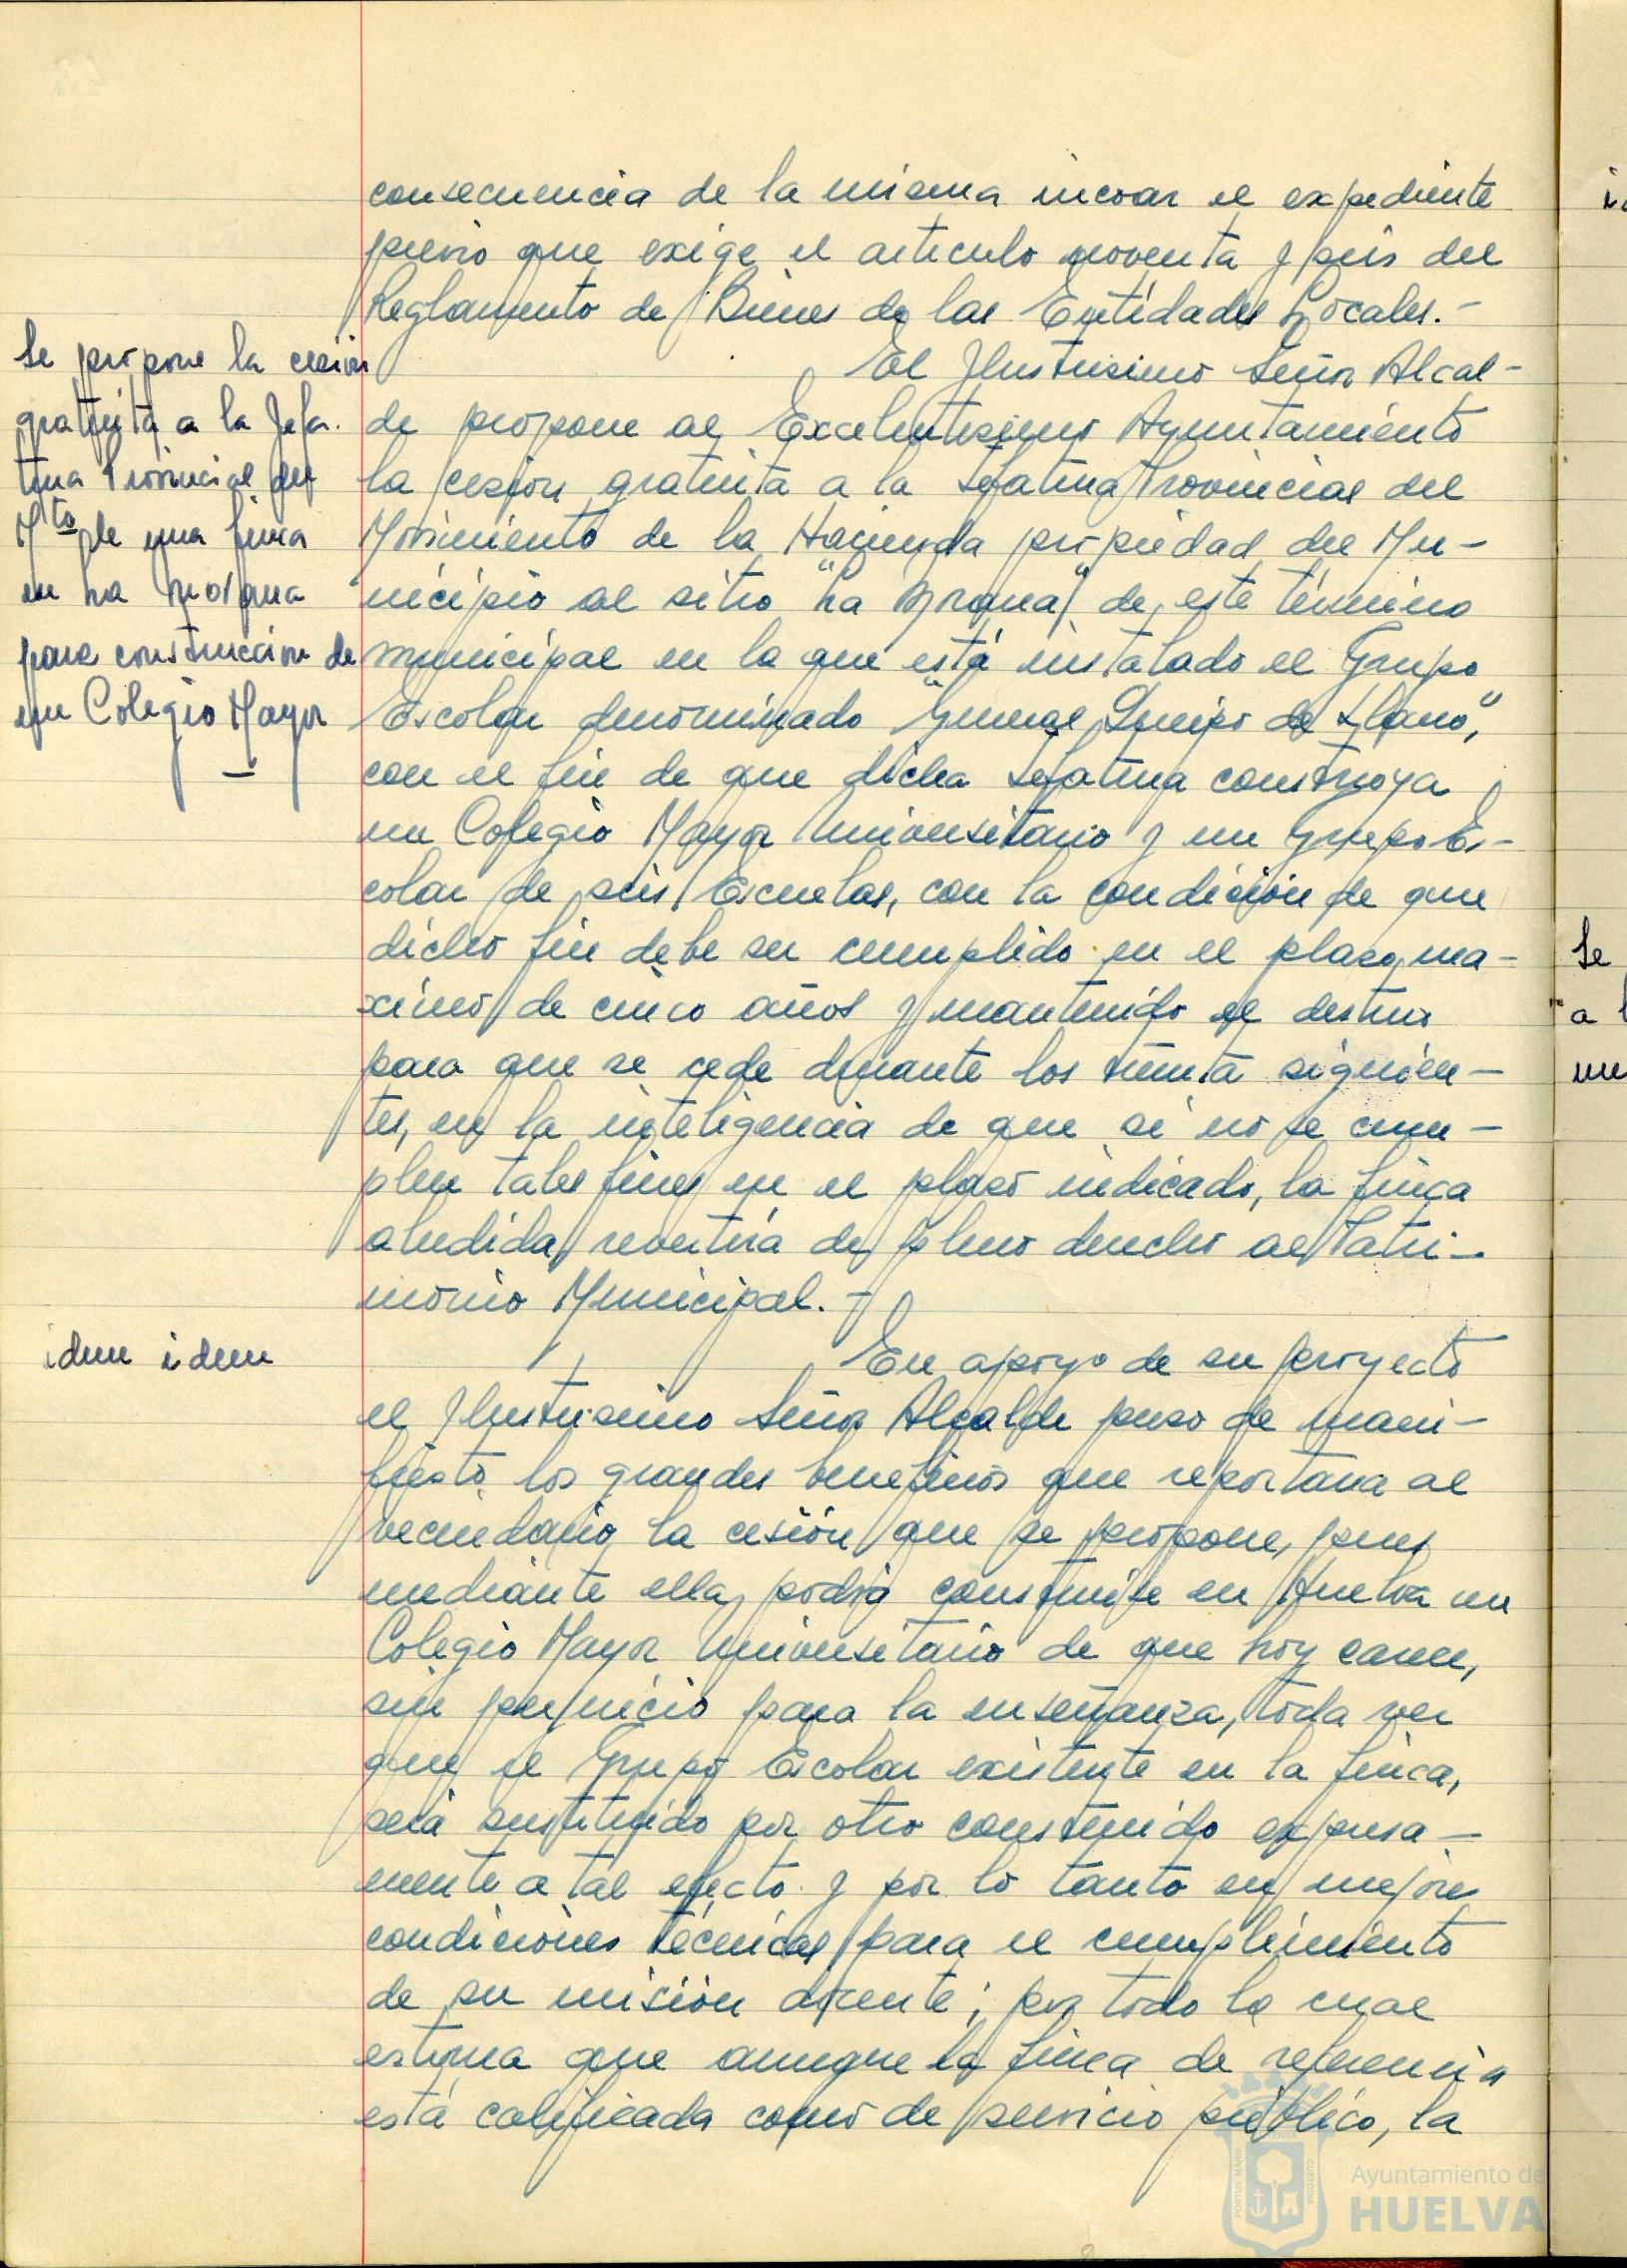 consecuencia de la misma incoar el expediente
previo que exige el articulo noventa y seis del
Reglamento de Bienes de las Entidades Locales.-
Se propone la cesion
gratuita a la Jefa-
tura Provincial del
Mto de una finca
en La Morana
para construccion de
un Colegio Mayor
El Ilustrisimo Señor Alcal-
de propone al Excelentisimo Ayuntamiento
la cesion gratuita a la Jefatura Provincial del
Movimiento de la Hacienda propiedad del Mu-
nicipio al sitio "La Morana" de este término
municipal en la que está instalado el Grupo
Escolar denominado "General Queipo de Llano",
con el fin de que dicha Jefatura construya
un Colegio Mayor Universitario y un Grupo Es-
colar de seis Escuelas, con la condición de que
dicho fin debe ser cumplido en el plazo ma-
ximo de cinco años y mantenido el destino
para que se cede durante los treinta siguien-
tes, en la inteligencia de que si no se cum-
plen tales fines en el plazo indicado, la finca
aludida revertirá de pleno derecho al Patri-
monio Municipal.-
idem idem
En apoyo de su proyecto
el Ilustrisimo Señor Alcalde puso de mani-
fiesto los grandes beneficios que reportaria al
vecindario la cesión que se propone, pues
mediante ella, podria construirse en Huelva un
Colegio Mayor Universitario de que hoy carece,
sin perjuicio para la enseñanza, toda vez
que el Grupo Escolar existente en la finca,
será sustituido por otro construido expresa-
mente a tal efecto y por lo tanto en mejores
condiciones técnicas para el cumplimiento
de su misión docente; por todo lo cual
estima que aunque la finca de referencia
está calificada como de servicio público, la
Se
a l
un
Ayuntamiento de
HUELVA